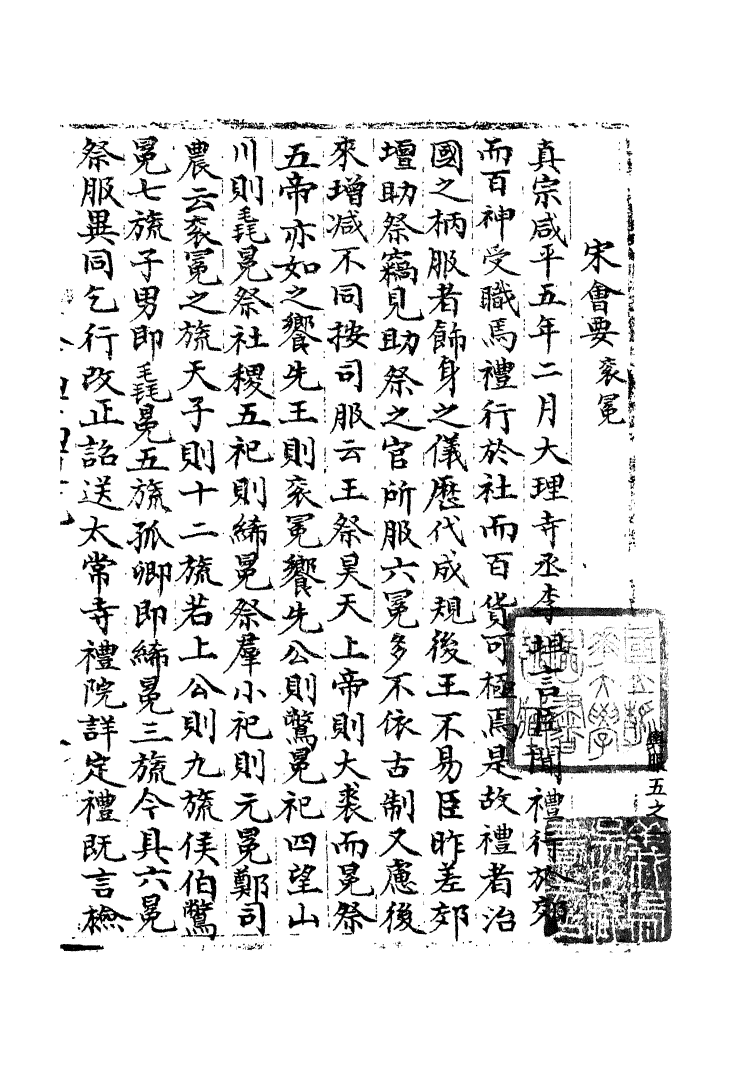 宋會要 衮冕
真宗咸平五年二月大理寺丞李坦言臣聞禮行於郊
而百神受職焉禮行於社而百貨可極焉是故禮者治
國之柄服者飾身之儀歷代成規後王不易臣昨差郊
壇助祭竊見助祭之官所服六冕多不依古制又慮後
來增减不同按司服云王祭昊天上帝則大裘而冕祭
五帝亦如之饗先王則衮冕饗先公則鷩冕祀四望山
川則毳冕祭社稷五祀則絺冕祭羣小祀則元冕鄭司
農云衮冕之旒天子則十二旒若上公則九旒侯伯鷩
冕七旒子男即毳冕五旒孤卿即絺冕三旒今具六冕
祭服異同乞行改正詔送太常寺禮院詳定禮既言檢
輿服五之